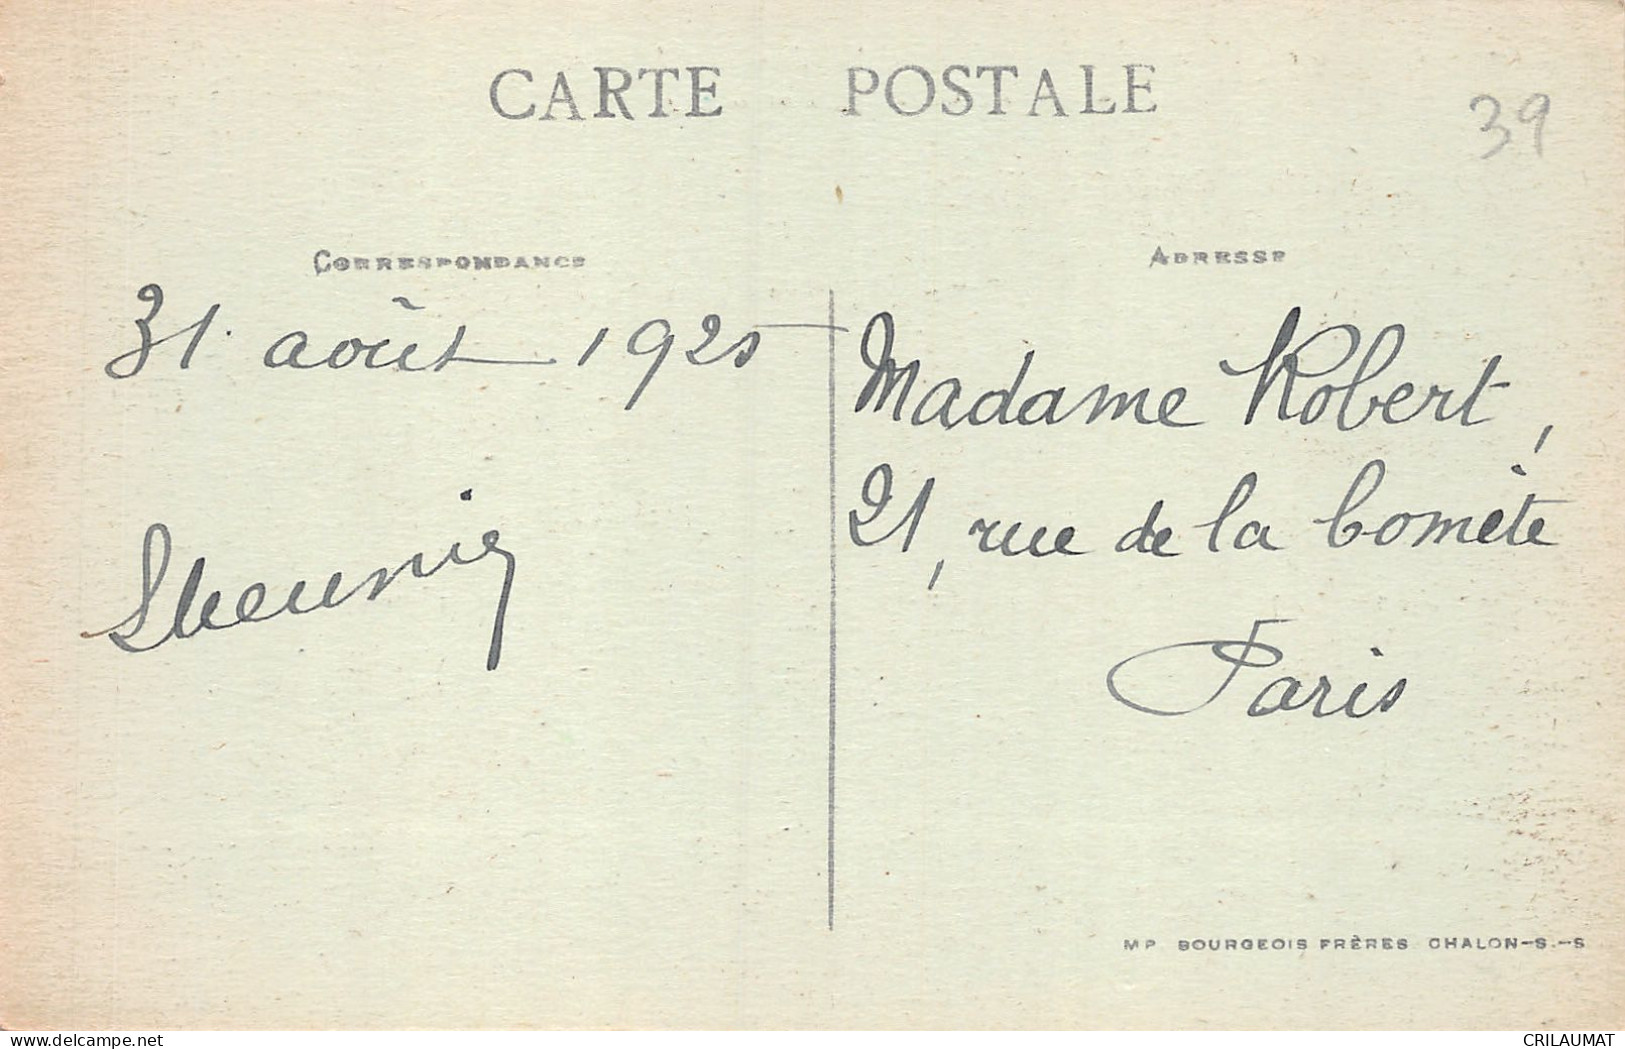 CARTE POSTALE
39
CORRESPONDANCE
31 août 1925
ADRESSE
Madame Robert,
21, rue de la Comète
Paris
MP BOURGEOIS FRÈRES CHALON-S.-S
www.delcampe.net
CRILAUMAT